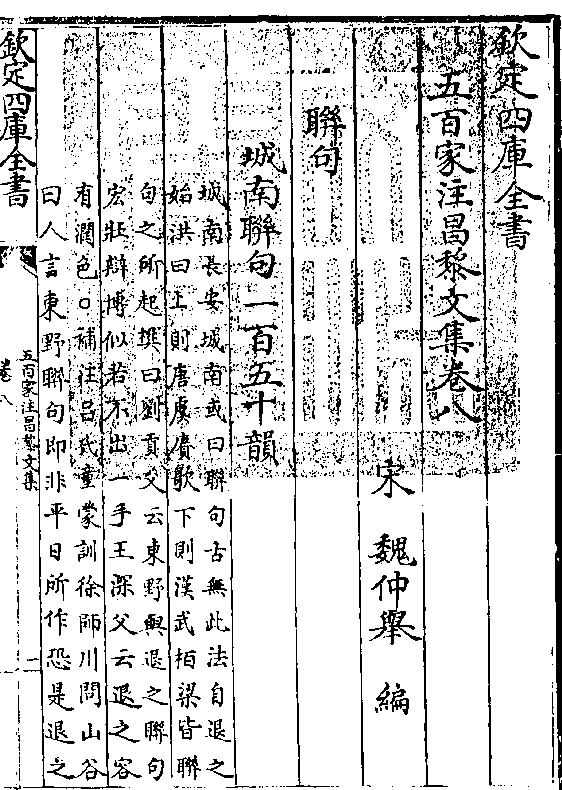 欽定四庫全書
五百家注昌黎文集卷八
宋 魏仲舉 編
聯句
城南聯句一百五十韻
城南長安城南或曰聯句古無此法自退之
始洪曰上則唐虞賡歌下則漢武栢梁皆聯
句之所起樊曰劉貢父云東野與退之聯句
宏壯辯博似若不出一手王深父云退之容
有潤色○補注吕氏童蒙訓徐師川問山谷
曰人言東野聯句即非平日所作恐是退之
欽定四庫全書
五百家注昌黎文集
卷八